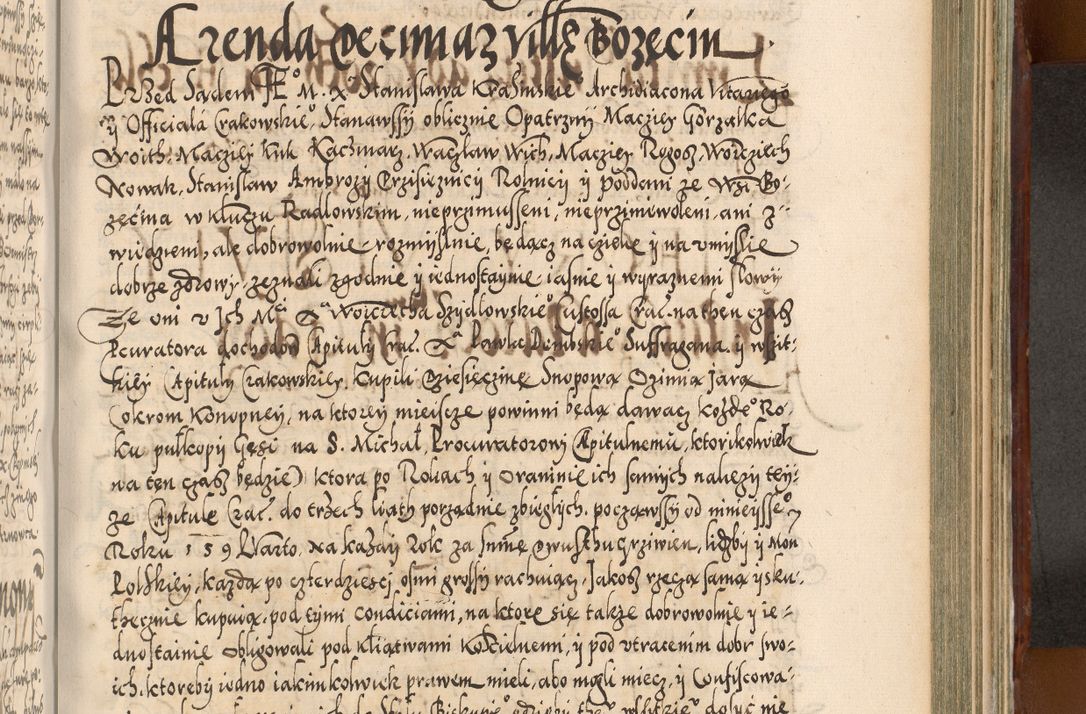 Arenda Decimaꝝ Villę Bozęcin
Przed Sądem JEº M. X Stanisława Krasinskieº Archidiacona
ÿ Officiala Crakowskieº, Stanąwssÿ oblicznie Opatrznÿ Macziej Gorzałka
Woith, Macziej Kuk Kaczmarz, Waczław Wich, Macziej Rogosz, Woiciech
Nowak, Stanisław Ambrozÿ Przisięznicÿ Rolnicÿ ÿ poddani ze Wsi Bo-
zęcina w kluczu Radlowskim, nieprzimusseni, nieprziniewoleni, ani z-
wiedzieni, ale dobrowolnie rozmÿslnie, będącz na cziele ÿ na vmÿsle
dobrze zdrowÿ, zeznali zgodnie ÿ iednostaÿnie iasnie ÿ wyraznemi słowÿ
Ze oni v Ich M. X Woiciecha Szydlowskieº Custossa Crac. na then czas
Pcuratora dochodow Capitulÿ Crac. X Pawla Dembskieº Suffragana. ÿ wszit-
kieÿ Capitulÿ Crakowskieÿ. Kupili Dziesięczinę Snopową Ozimą Jarą
(okrom Konopneÿ, na ktoreÿ mieiscze powinni będą dawacz kozdeº Ro-
ku pułkopÿ Gęsi na S. Michał, Procuratorowi Capitulnemu, ktorikolwiek
na ten czas będzie) ktora po Rolach ÿ ich samÿch nalezÿ teÿ-
ze Capitule Crac. do trzech liath porządnie zbiegłÿch. począwssÿ od ninieÿsseº
Roku 159 Na kazdÿ Rok za Summę dwusthu grziwien, liczbÿ ÿ Mon
Polskieÿ, kazdą po czterdziescÿ osmi grossÿ rachuiącz. Jakosz rzeczą samą ÿ sku-
thecznie kupuią, pod tÿmi condiciami, na ktore się takze dobrowolnie ÿ ie-
dnostainie obligowali pod kliątwami Kosczielnemi, ÿ pod vtraceniim dobr swo-
ich, ktorebÿ iedno iakimkolwiek prawem mieli, abo mogli miecz, ÿ Confiscowa-